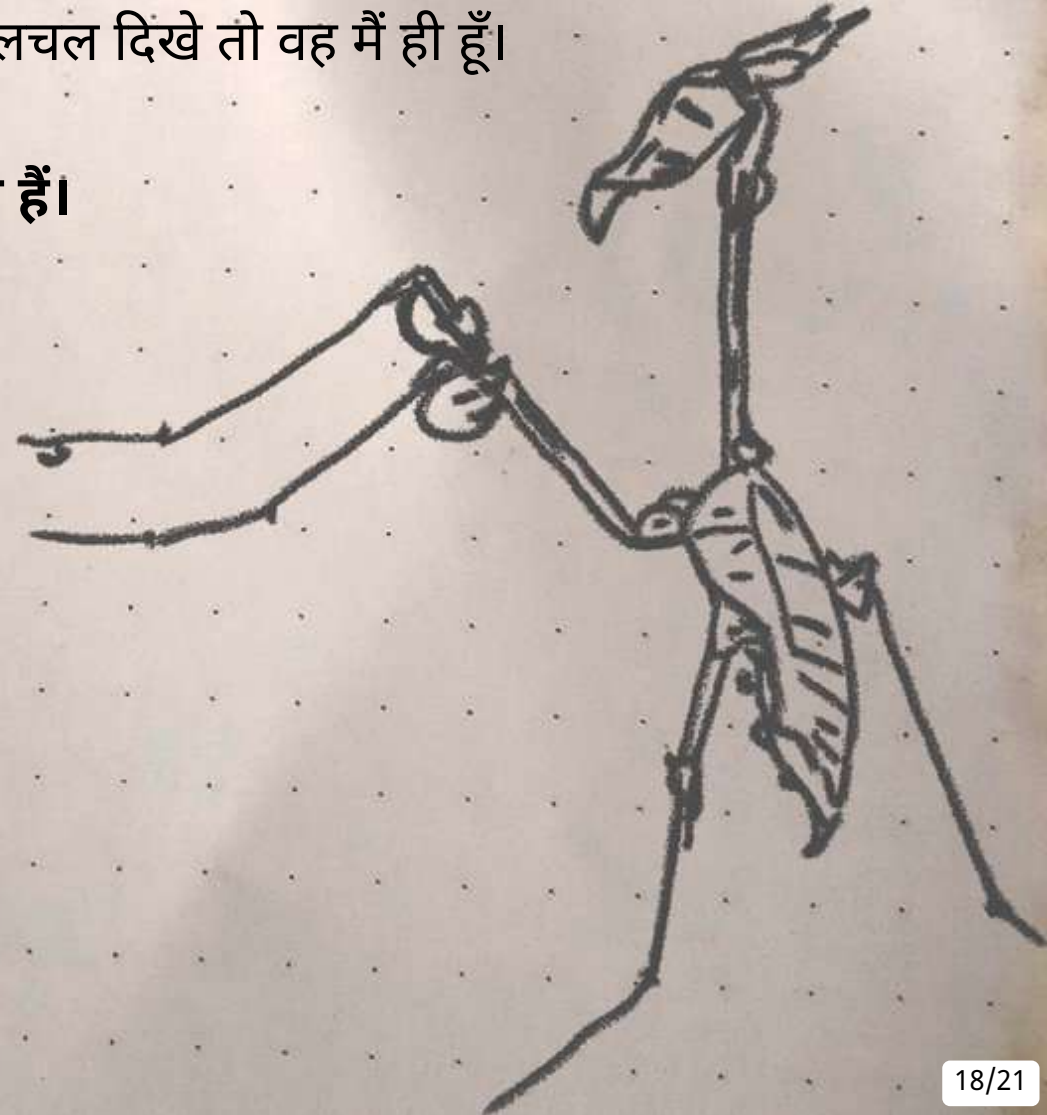 लचल दिखे तो वह मैं ही हूँ।
हैं।
18/21